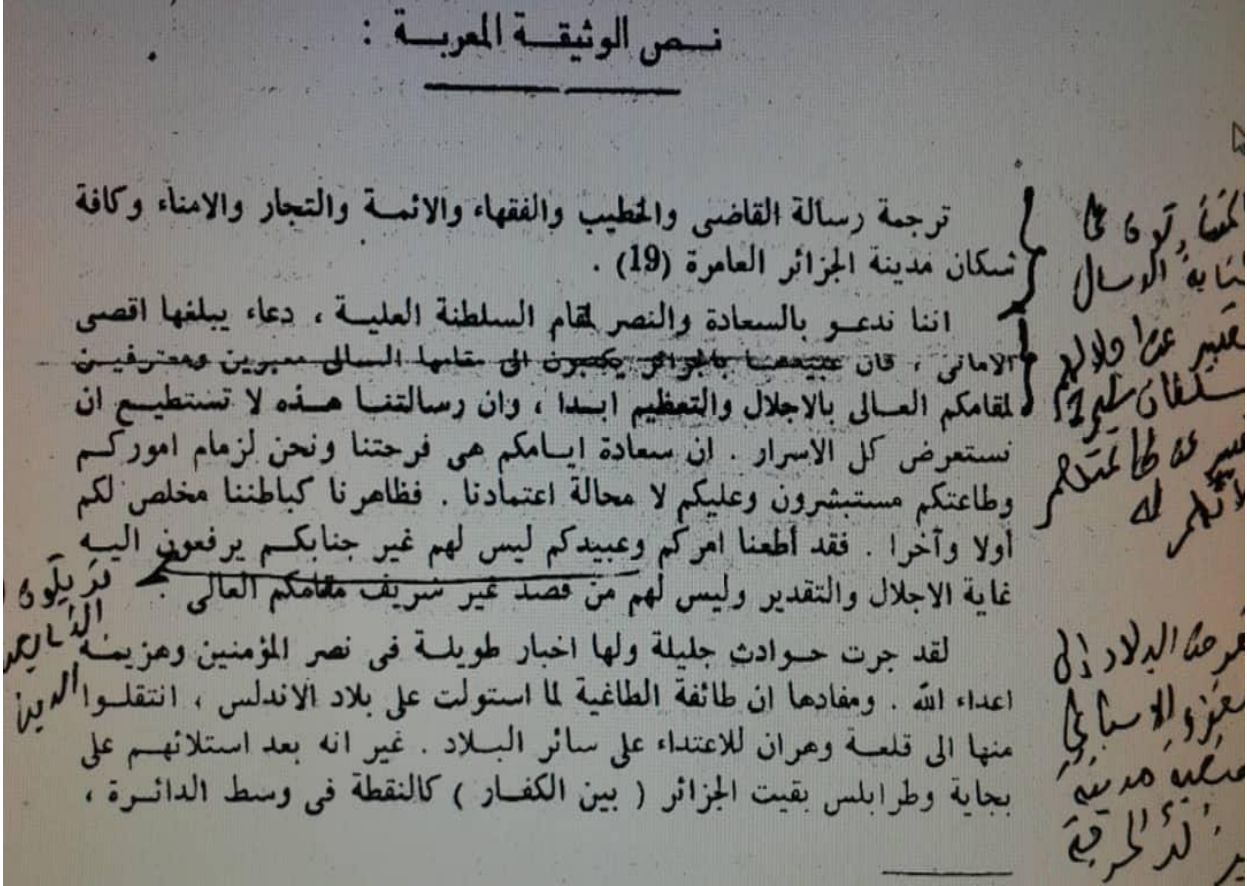 نص الوثيقة المعربة :
ترجمة رسالة القاضى والخطيب والفقهاء والائمة والتجار والامناء وكافة
سكان مدينة الجزائر العامرة (19) .
اننا ندعو بالسعادة والنصر لمقام السلطنة العلية ، دعاء يبلغها اقصى
الامانى ، فان عبيدها بالجزائر يكتبون الى مقامها السالى معبرين ومعترفين
لمقامكم العالى بالاجلال والتعظيم ابدا ، وان رسالتنا هذه لا تستطيع ان
نستعرض كل الاسرار . ان سعادة ايامكم هى فرحتنا ونحن لزمام اموركم
وطاعتكم مستبشرون وعليكم لا محالة اعتمادنا . فظاهرنا كباطننا مخلص لكم
أولا وآخرا . فقد أطعنا امركم وعبيدكم ليس لهم غير جنابكم يرفعون اليه
غاية الاجلال والتقدير وليس لهم من قصد غير شريف مقامكم العالى .
لقد جرت حوادث جليلة ولها اخبار طويلة فى نصر المؤمنين وهزيمة
اعداء الله . ومفادها ان طائفة الطاغية لما استولت على بلاد الاندلس ، انتقلوا
منها الى قلعة وهران للاعتداء على سائر البلاد . غير انه بعد استلائهم على
بجاية وطرابلس بقيت الجزائر ( بين الكفار ) كالنقطة فى وسط الدائرة ،
الدين
البلاد إلى
مدينة